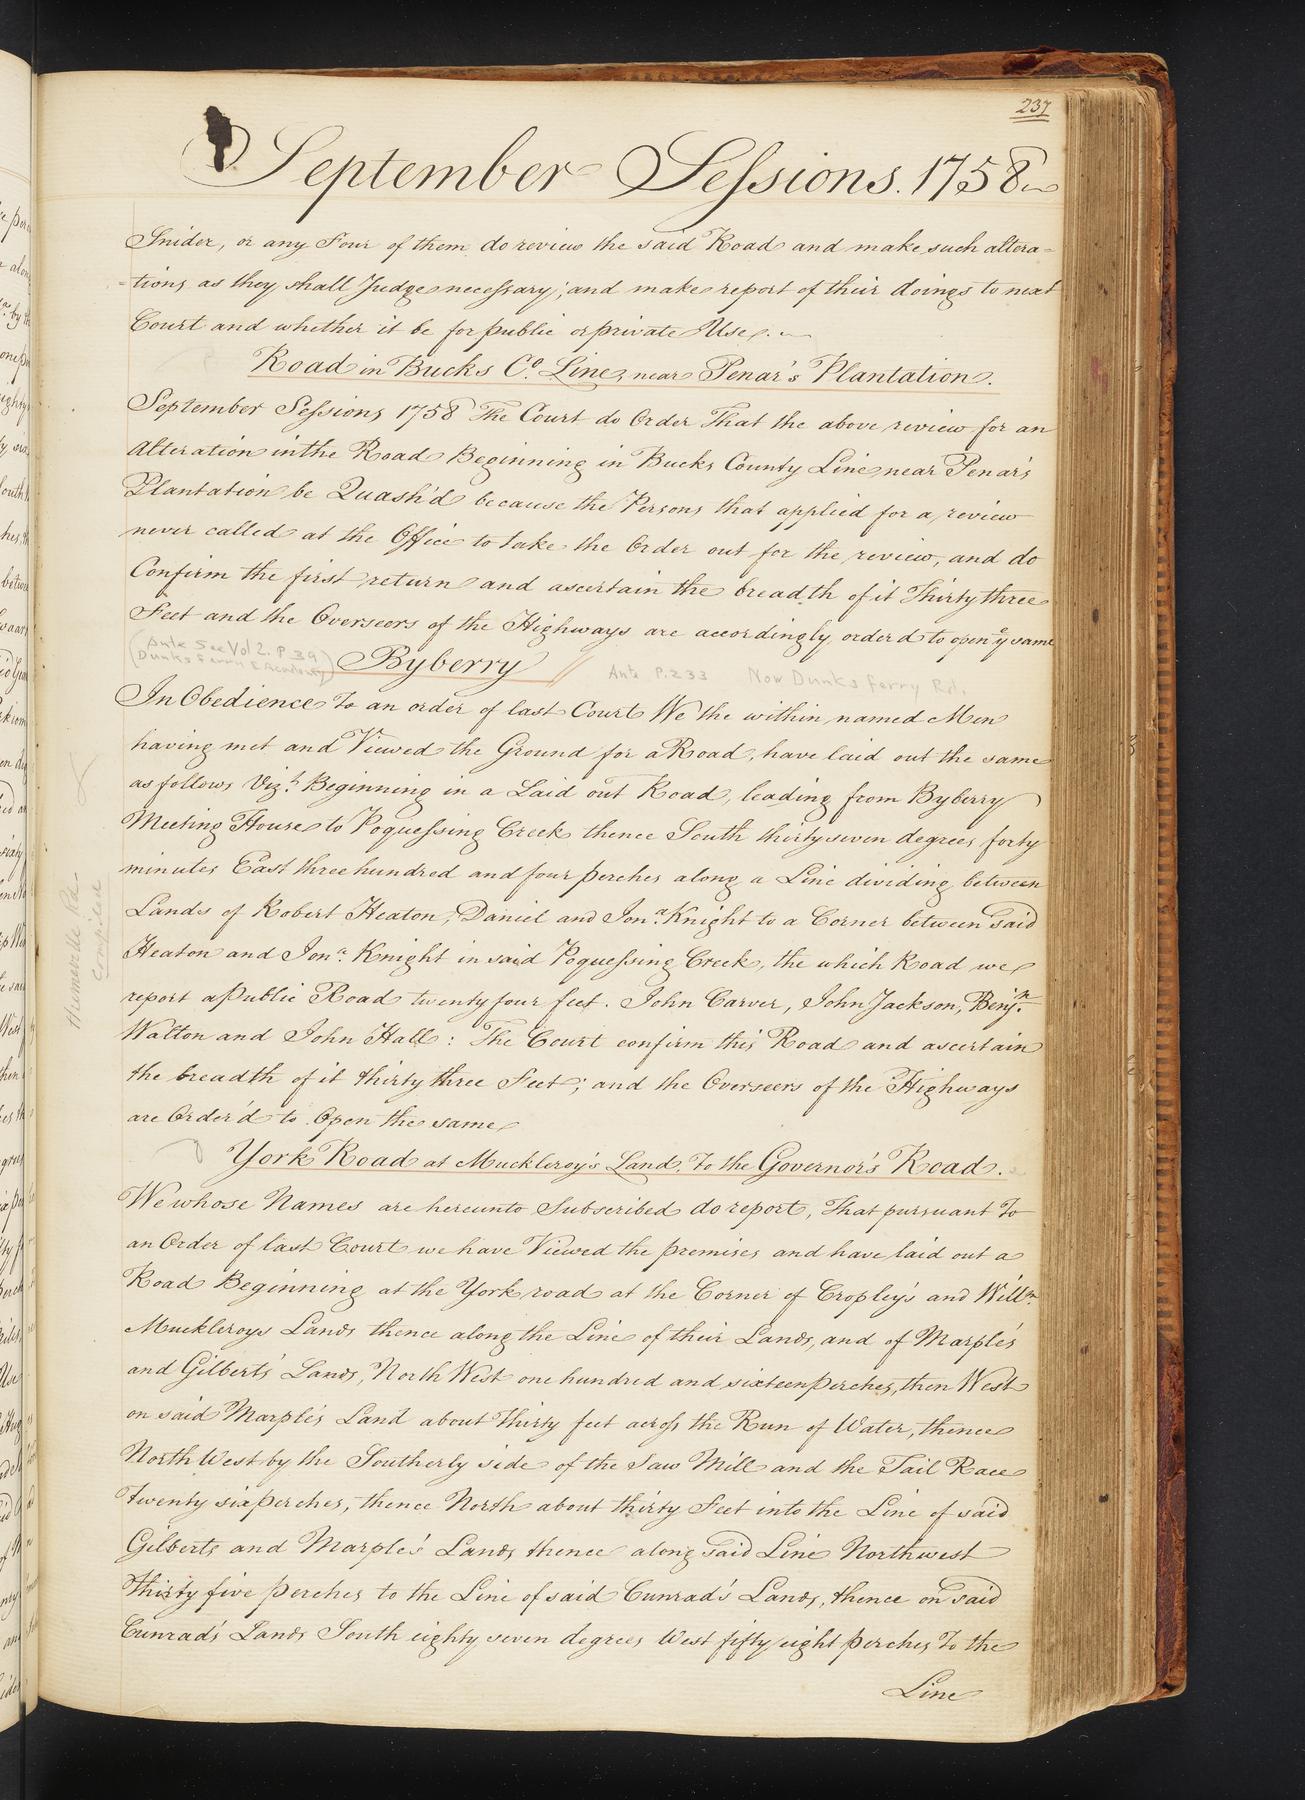 237
September Sessions. 1758
Snider, or any Four of them do review the said Road and make such altera=
=tions as they shall Judge necessary; and make report of their doings to next
Court and whether it be for public or private Use.
Road in Bucks Co. Line, near Penar's Plantation.
September Sessions 1758 The Court do Order That the above review for an
Alteration in the Road Beginning in Bucks County Line near Penar's
Plantation be Quash'd because the Persons that applied for a review
never called at the Office to take the Order out for the review, and do
Confirm the first return and ascertain the breadth of it Thirty three
Feet and the Overseers of the Highways are accordingly order'd to open ye same
(Ante See Vol 2. P. 39
Dunks Ferry & Academy)
Byberry
Ante P. 233 Now Dunks Ferry Rd.
In Obedience To an order of last Court We the within named Men
having met and Viewed the Ground for a Road, have laid out the same
as follows Vizt. Beginning in a Laid out Road, leading from Byberry
Meeting House to Poquessing Creek thence South thirty seven degrees forty
minutes East three hundred and four perches along a Line dividing between
Lands of Robert Heaton, Daniel and Jona. Knight to a Corner between said
Heaton and Jona. Knight in said Poquessing Creek, the which Road we
report a Public Road twenty four feet. John Carver, John Jackson, Benjn.
Walton and John Hall: The Court confirm this Road and ascertain
the breadth of it thirty three Feet; and the Overseers of the Highways
are Order'd to Open the same
Humeville Rd.
York Road at Muckleroy's Land, To the Governor's Road.
We whose Names are hereunto Subscribed do report, That pursuant To
an Order of last Court we have Viewed the premises and have laid out a
Road Beginning at the York road at the Corner of Cropley's and Willm.
Muckleroys Lands thence along the Line of their Lands, and of Marple's
and Gilberts' Lands, North West one hundred and sixteen perches, then West
on said Marple's Land about Thirty feet across the Run of Water, thence
North West by the Southerly side of the Saw Mill and the Tail Race
Twenty six perches, thence North about thirty Feet into the Line of said
Gilberts and Marple's Lands thence along said Line Northwest
Thirty five perches to the Line of said Cunrad's Lands, thence on said
Cunrad's Lands South eighty seven degrees West fifty eight perches To the
Line